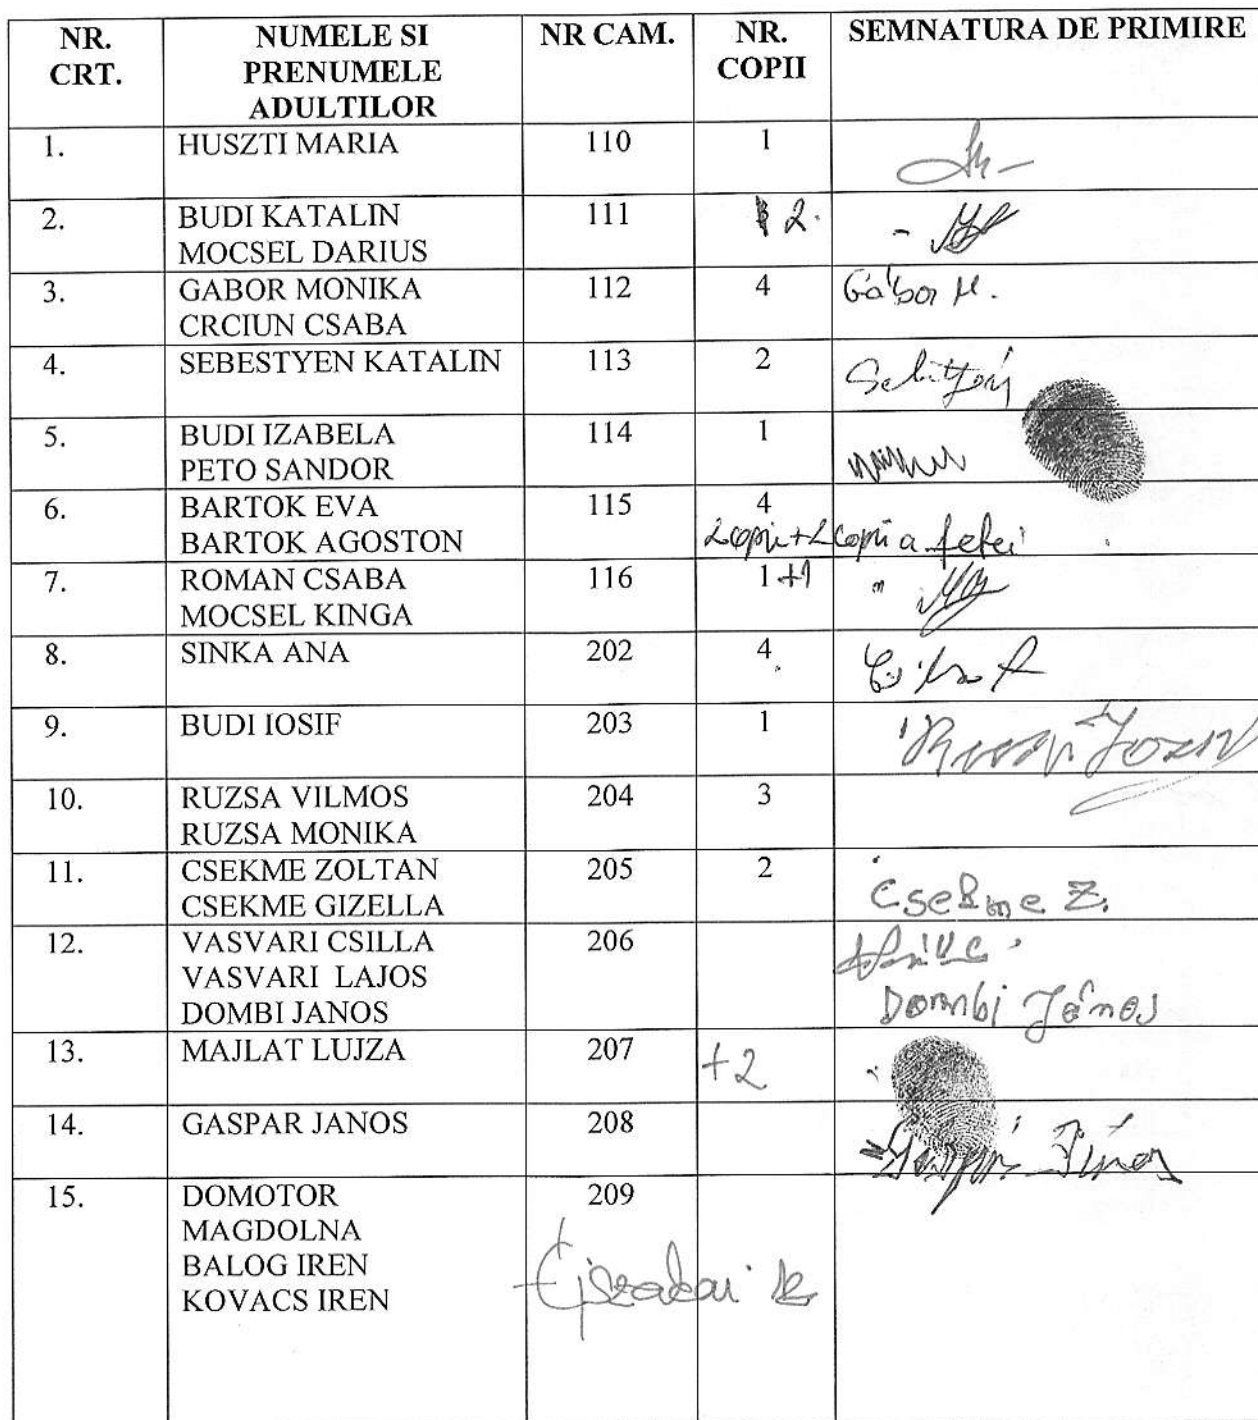 NR. CRT. NUMELE SI PRENUMELE ADULTILOR NR CAM. NR. COPII SEMNATURA DE PRIMIRE
1. HUSZTI MARIA 110 1
2. BUDI KATALIN 111 2.
MOCSEL DARIUS
3. GABOR MONIKA 112 4 Gábor M.
CRCIUN CSABA
4. SEBESTYEN KATALIN 113 2
5. BUDI IZABELA 114 1
PETO SANDOR
6. BARTOK EVA 115 4
BARTOK AGOSTON 2 copii + 2 copii a fetei
7. ROMAN CSABA 116 1 +1
MOCSEL KINGA
8. SINKA ANA 202 4
9. BUDI IOSIF 203 1
10. RUZSA VILMOS 204 3
RUZSA MONIKA
11. CSEKME ZOLTAN 205 2
CSEKME GIZELLA Csekme Z.
12. VASVARI CSILLA 206
VASVARI LAJOS
DOMBI JANOS Dombi János
13. MAJLAT LUJZA 207 +2
14. GASPAR JANOS 208
15. DOMOTOR 209
MAGDOLNA
BALOG IREN
KOVACS IREN